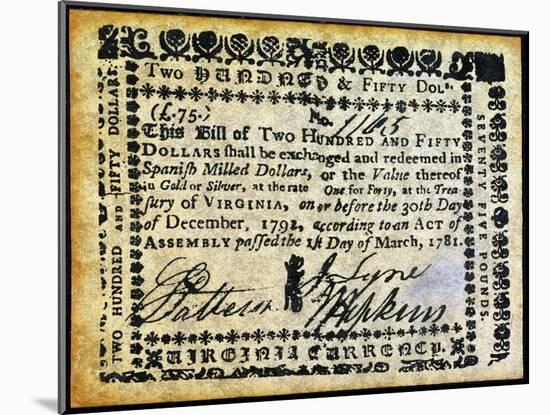 TWO HUNDRED & FIFTY DOLˢ.
(£.75.) No. 1165
This Bill of TWO HUNDRED AND FIFTY
DOLLARS shall be exchanged and redeemed in
Spanish Milled Dollars, or the Value thereof
in Gold or Silver, at the rate One for Forty, at the Trea-
sury of VIRGINIA, on or before the 30th Day
of December, 1792, according to an ACT of
ASSEMBLY passed the 1st Day of March, 1781.
J Lyne
Hopkins
VIRGINIA CURRENCY.
TWO HUNDRED AND FIFTY DOLLARS.
SEVENTY FIVE POUNDS.